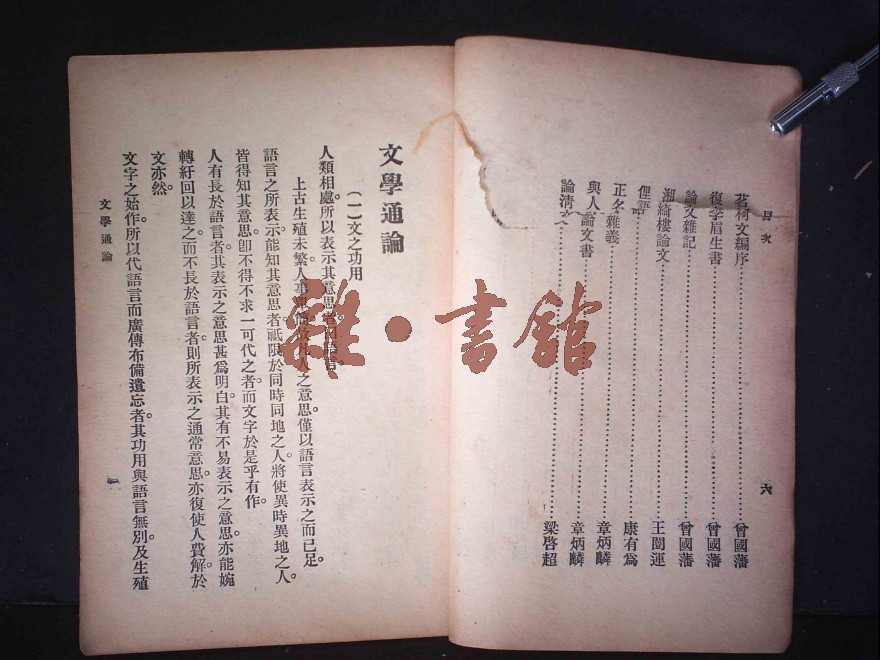 目次
茗柯文編序 曾國藩
復李眉生書 曾國藩
論文雜記 曾國藩
湘綺樓論文 王闓運
俚語 康有爲
正名雜義 章炳麟
與人論文書 章炳麟
論清文 梁啓超
六
文學通論
(一)文之功用
人類相處。所以表示其意思者
上古生殖未繁。人事 人之意思。僅以語言表示之而已足。
語言之所表示。能知其意思者。祇限於同時同地之人。將使異時異地之人
皆得知其意思。卽不得不求一可代之者。而文字於是乎有作。
人有長於語言者。其表示之意思甚爲明白。其有不易表示之意思。亦能婉
轉紆回以達之。而不長於語言者。則所表示之通常意思。亦復使人費解。於
文亦然。
文字之始作。所以代語言而廣傳布備遺忘者。其功用與語言無別。及生殖
文學通論
雜·書館